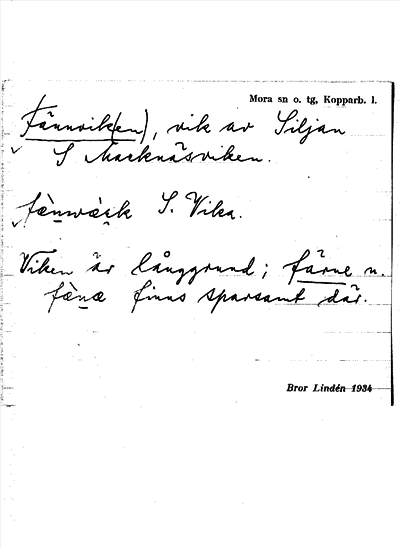 Mora sn o. tg, Kopparb. l.
Fännvik(en), vik av Siljan
S Macknäsviken.
fæ̀nwæ̀ık S. Vika.
Viken är långgrund; färne n.
fæ̀næ finns sparsamt där.
Bror Lindén 1934